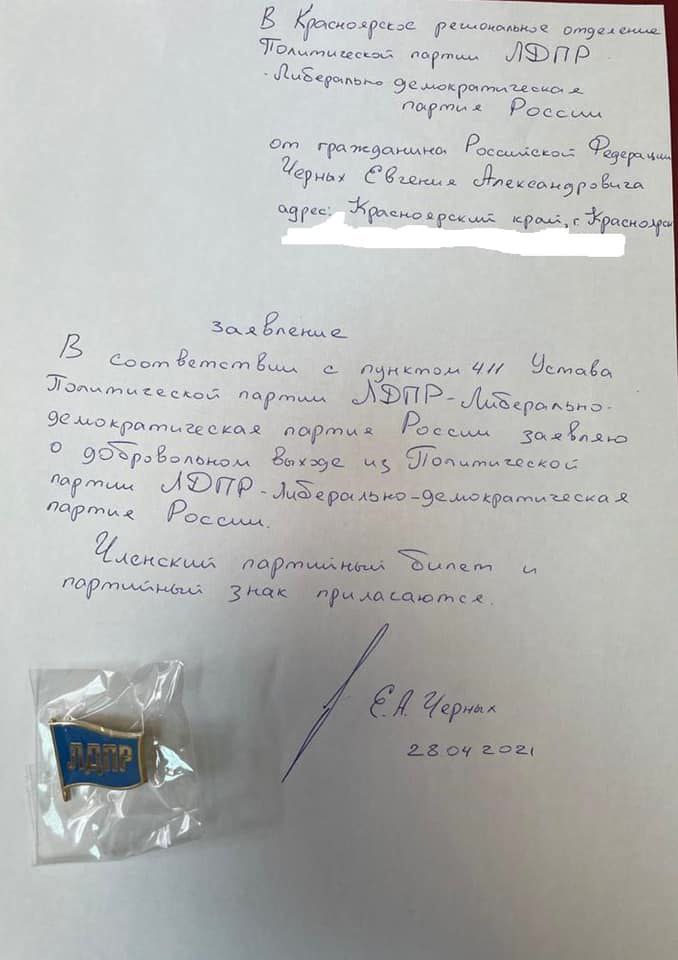 В Красноярское региональное отделение
Политической партии ЛДПР
-Либерально демократическая
партия России
от гражданина Российской Федерации
Черных Евгения Александровича
адрес: Красноярский край, г. Краснояр
заявление
В соответствии с пунктом 4.11 Устава
Политической партии ЛДПР-Либерально-
демократическая партия России заявляю
о добровольном выходе из Политической
партии ЛДПР-Либерально-демократическая
партия России.
Членский партийный билет и
партийный знак приласаются.
Е.А. Черных
28.04 2021
ЛДПР